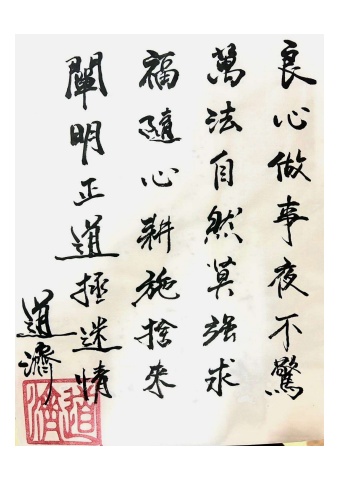 良心做事夜不驚
萬法自然莫強求
福隨心耕施捨來
闡明正道拯迷情
道濟
道濟